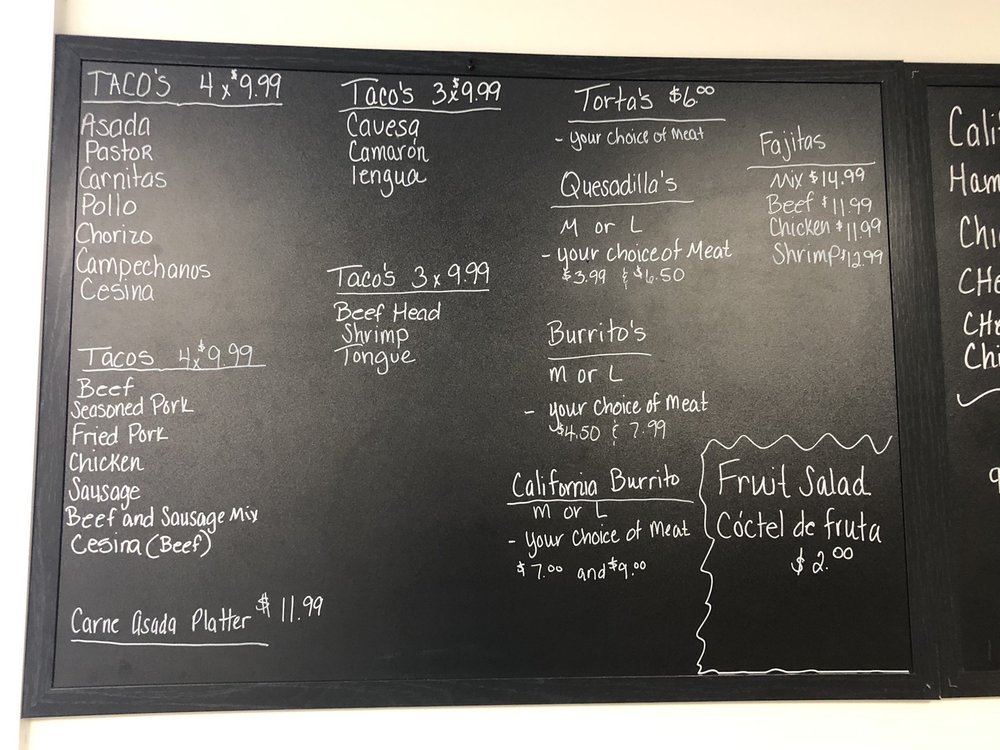 TACO'S 4 x $9.99
Asada
Pastor
Carnitas
Pollo
Chorizo
Campechanos
Cesina
Tacos 4x $9.99
Beef
Seasoned Pork
Fried Pork
Chicken
Sausage
Beef and Sausage Mix
Cesina (Beef)
Carne Asada Platter $11.99
Taco's 3x$9.99
Cavesa
Camarón
lengua
Taco's 3 x 9.99
Beef Head
Shrimp
Tongue
Torta's $6.00
- your choice of Meat
Quesadilla's
M or L
- your choice of Meat
$3.99 & $6.50
Burrito's
M or L
- your choice of Meat
$4.50 & 7.99
California Burrito
M or L
- your choice of Meat
$7.00 and $9.00
Fajitas
Mix $14.99
Beef $11.99
Chicken $11.99
Shrimp $12.99
Fruit Salad
Cóctel de fruta
$2.00
Calif
Ham
Chi
CHe
CHe
Chi
9